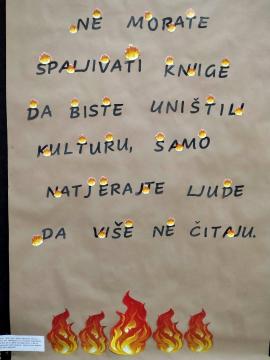 NE MORATE
SPALJIVATI KNJIGE
DA BISTE UNIŠTILI
KULTURU, SAMO
NATJERAJTE LJUDE
DA VIŠE NE ČITAJU.